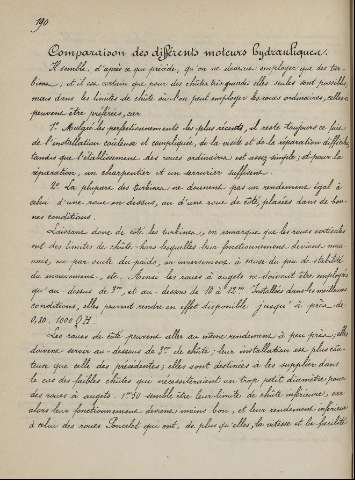 190
Comparaison des différents moteurs hydrauliques.
Il semble, d'après ce qui précède, qu'on ne devrait employer que des tur-
bines, et il est certain que pour des chûtes très grandes elles seules sont possibles,
mais dans les limites de chûte où l'on peut employer les roues ordinaires, celles-ci
peuvent être préférées, car
1º Malgré les perfectionnements les plus récents, il reste toujours ce fait
de l'installation coûteuse et compliquée, de la visite et de la réparation difficile,
tandis que l'établissement des roues ordinaires est assez simple, et pour la
réparation, un charpentier et un serrurier suffisent.
2º La plupart des turbines ne donnent pas un rendement égal à
celui d'une roue en dessus, ou d'une roue de côté, placées dans de bon-
nes conditions.
Laissant donc de côté les turbines, on remarque que les roues verticales
ont des limites de chute hors lesquelles leur fonctionnement devient mau-
vais, ou par suite du poids, ou inversement, à cause du peu de stabilité
du mouvement, etc. Ainsi les roues à augets ne doivent être employées
qu'au-dessus de 3m, et au-dessous de 10 à 12m. Installées dans les meilleures
conditions, elles peuvent rendre en effet disponible jusqu'à près de
0,80. 1000 Q H
Les roues de côté peuvent aller au même rendement à peu près; elles
doivent servir au-dessous de 3m de chûte; leur installation est plus coû-
teuse que celle des précédentes; elles sont destinées à les suppléer dans
le cas des faibles chûtes qui nécessiteraient un trop petit diamètre pour
des roues à augets. 1m50 semble être leur limite de chûte inférieure, car
alors leur fonctionnement devient moins bon, et leur rendement inférieur
à celui des roues Poncelet qui ont, de plus qu'elles, la vitesse et la facilité